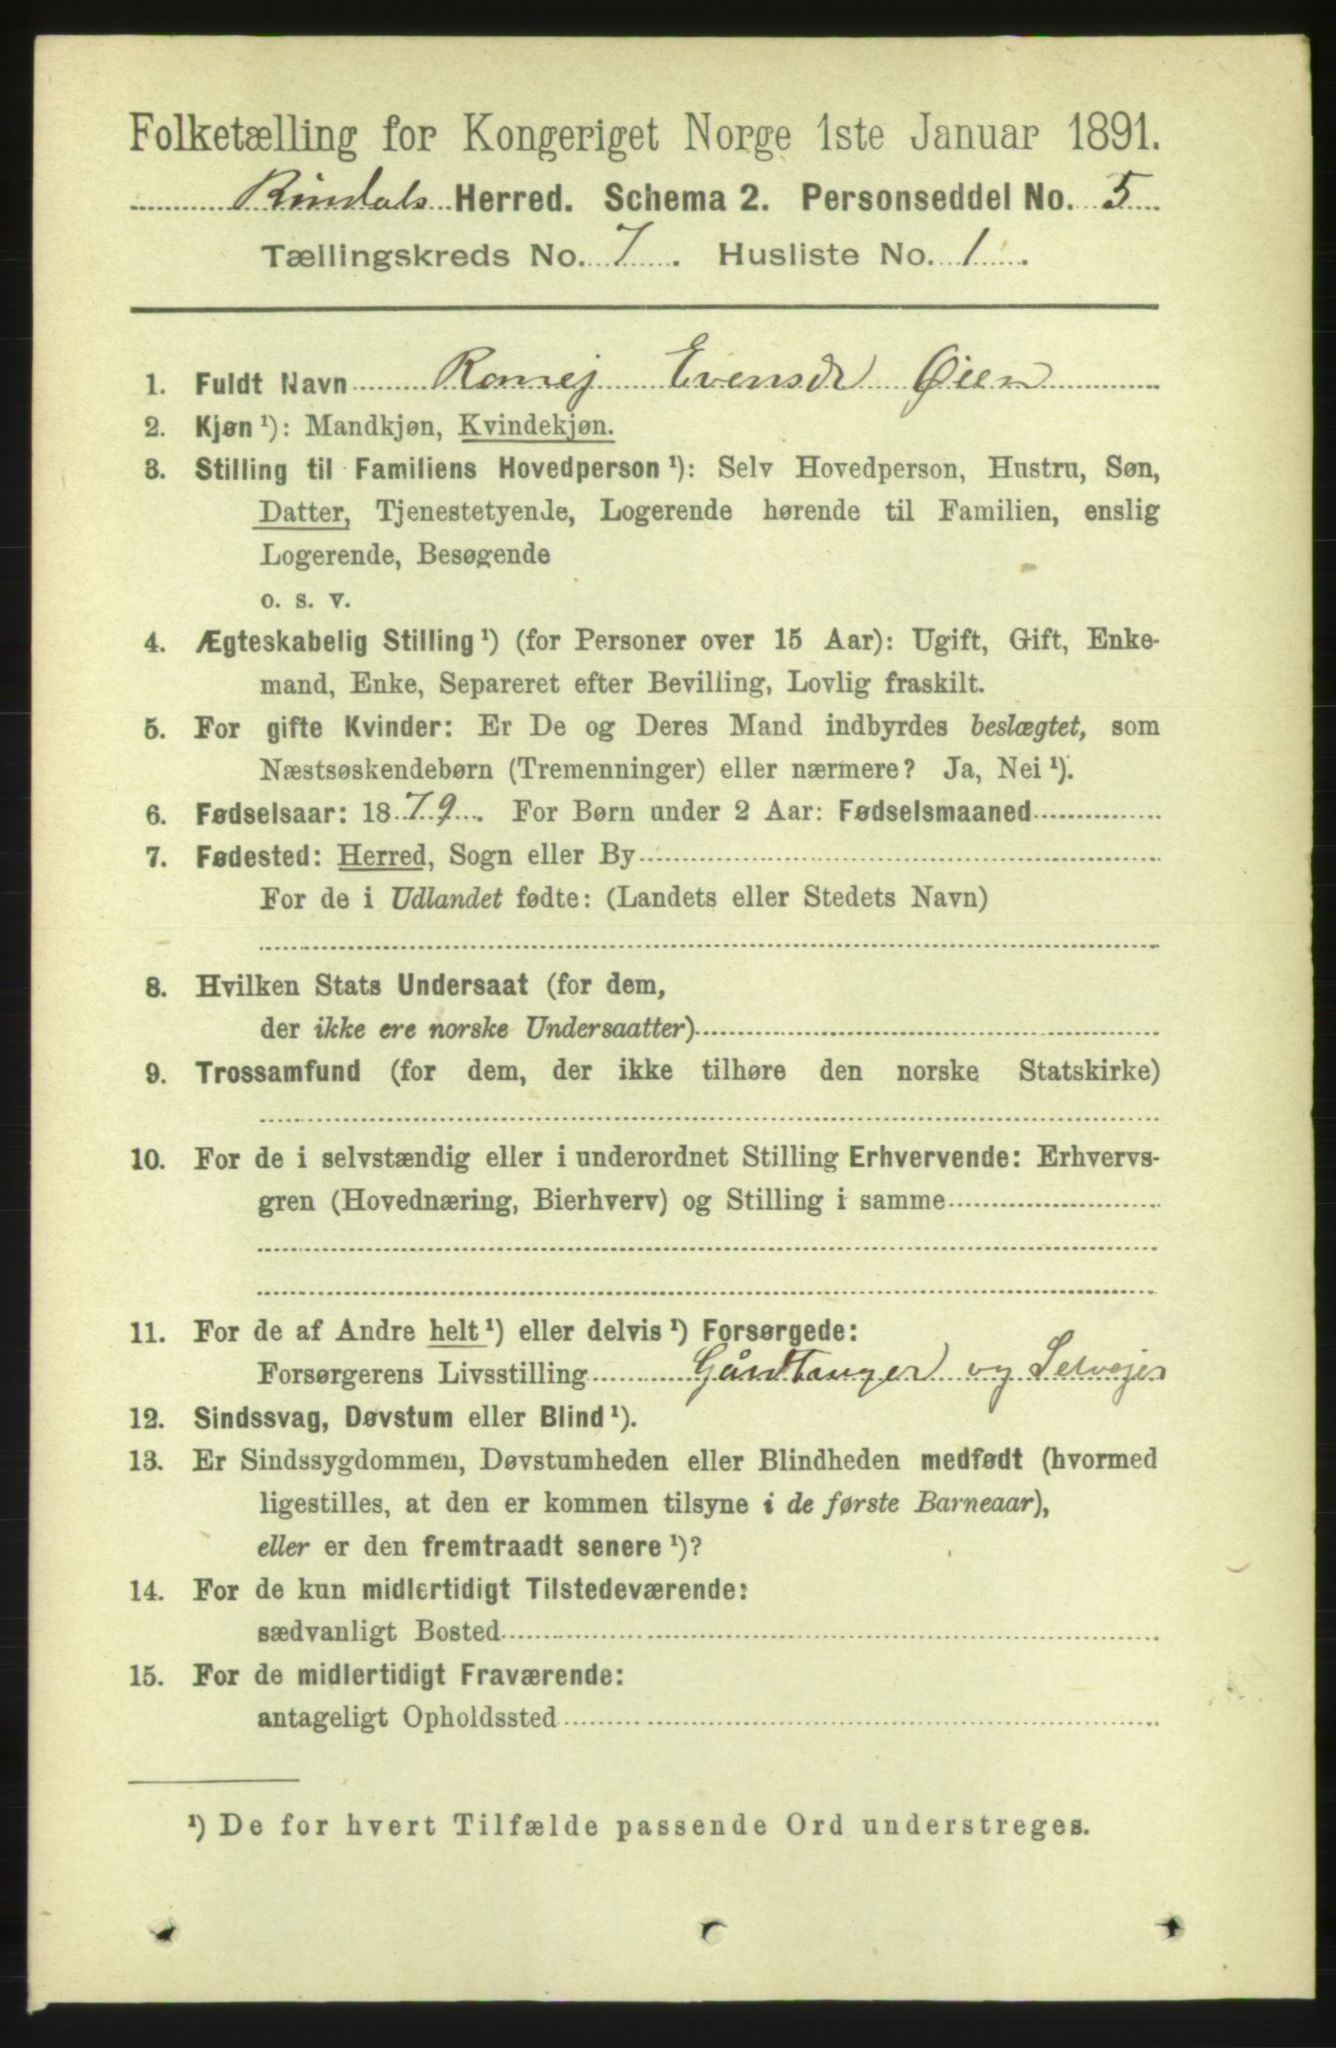 Folketælling for Kongeriget Norge 1ste Januar 1891.
Rindals Herred. Schema 2. Personseddel No. 5
Tællingskreds No. 7. Husliste No. 1.
1. Fuldt Navn Evensdr Øien
2. Kjøn ¹): Mandkjøn, Kvindekjøn.
3. Stilling til Familiens Hovedperson ¹): Selv Hovedperson, Hustru, Søn,
Datter, Tjenestetyende, Logerende hørende til Familien, enslig
Logerende, Besøgende
o. s. v.
4. Ægteskabelig Stilling ¹) (for Personer over 15 Aar): Ugift, Gift, Enke-
mand, Enke, Separeret efter Bevilling, Lovlig fraskilt.
5. For gifte Kvinder: Er De og Deres Mand indbyrdes beslægtet, som
Næstsøskendebørn (Tremenninger) eller nærmere? Ja, Nei ¹).
6. Fødselsaar: 1879. For Børn under 2 Aar: Fødselsmaaned
7. Fødested: Herred, Sogn eller By
For de i Udlandet fødte: (Landets eller Stedets Navn)
8. Hvilken Stats Undersaat (for dem,
der ikke ere norske Undersaatter)
9. Trossamfund (for dem, der ikke tilhøre den norske Statskirke)
10. For de i selvstændig eller i underordnet Stilling Erhvervende: Erhvervs-
gren (Hovednæring, Bierhverv) og Stilling i samme
11. For de af Andre helt ¹) eller delvis ¹) Forsørgede:
Forsørgerens Livsstilling og Selvejer
12. Sindssvag, Døvstum eller Blind ¹).
13. Er Sindssygdommen, Døvstumheden eller Blindheden medfødt (hvormed
ligestilles, at den er kommen tilsyne i de første Barneaar),
eller er den fremtraadt senere ¹)?
14. For de kun midlertidigt Tilstedeværende:
sædvanligt Bosted
15. For de midlertidigt Fraværende:
antageligt Opholdssted
¹) De for hvert Tilfælde passende Ord understreges.